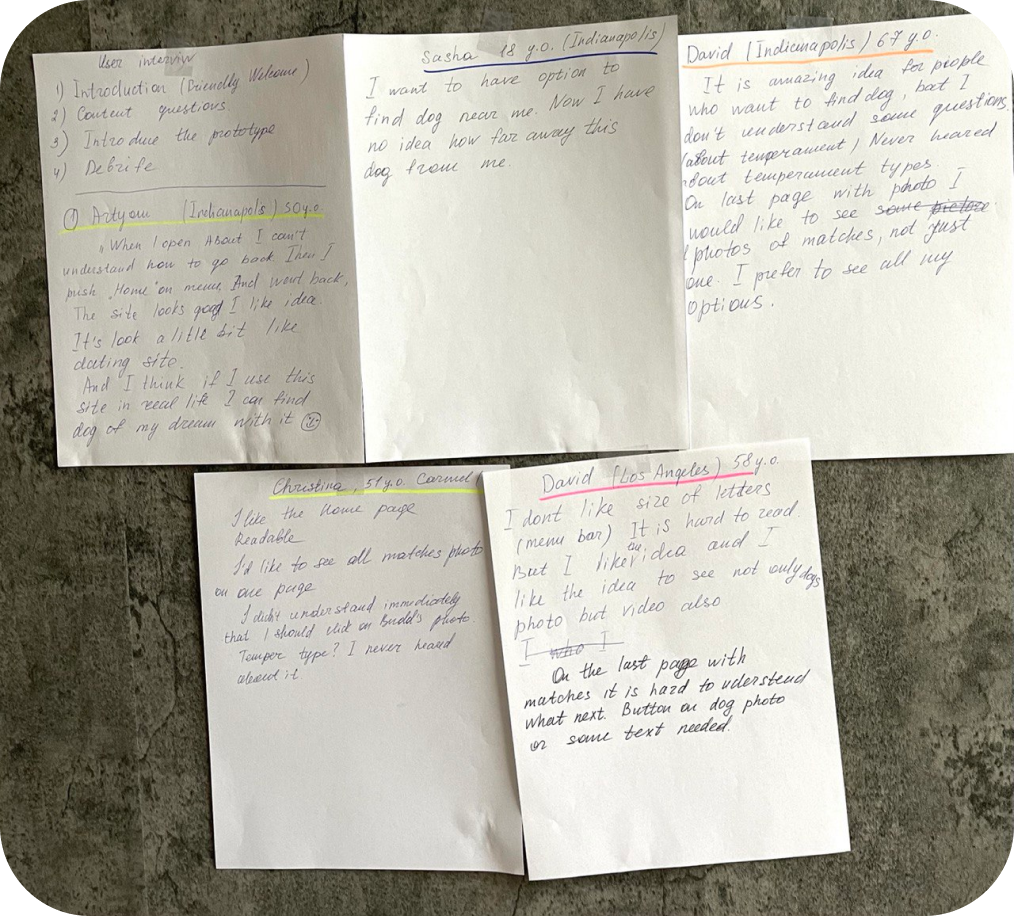 User interviw
1) Introduction (Friendly Welcome)
2) Context questions
3) Introduce the prototype
4) Debrife
① Artyom (Indianapolis) 50 y.o.
"When I open About I can't
understand how to go back. Then I
push "Home" on menu. And went back.
The site looks good I like idea.
It's look a little bit like
dating site.
And I think if I use this
site in real life I can find
dog of my dream with it
Sasha 18 y.o. (Indianapolis)
I want to have option to
find dog near me. Now I have
no idea how far away this
dog from me.
David (Indianapolis) 67 y.o.
It is amazing idea for people
who want to find dog, but I
don't understand some questions
(about temperament) Never heared
about temperament types
On last page with photo I
would like to see some picture
photos of matches, not just
one. I prefer to see all my
options.
Christina, 51 y.o. Carmel
I like the Home page
Readable
I'd like to see all matches photo
on one page
I didn't understand immediately
that I should click on Budd's photo.
Temper type? I never heared
about it
David (Los Angeles) 58 y.o.
I dont like size of letters
(menu bar) It is hard to read.
But I like the idea and I
like the idea to see not only dogs
photo but video also
I who I
On the last page with
matches it is hard to uderstend
what next. Button on dog photo
or some text needed.